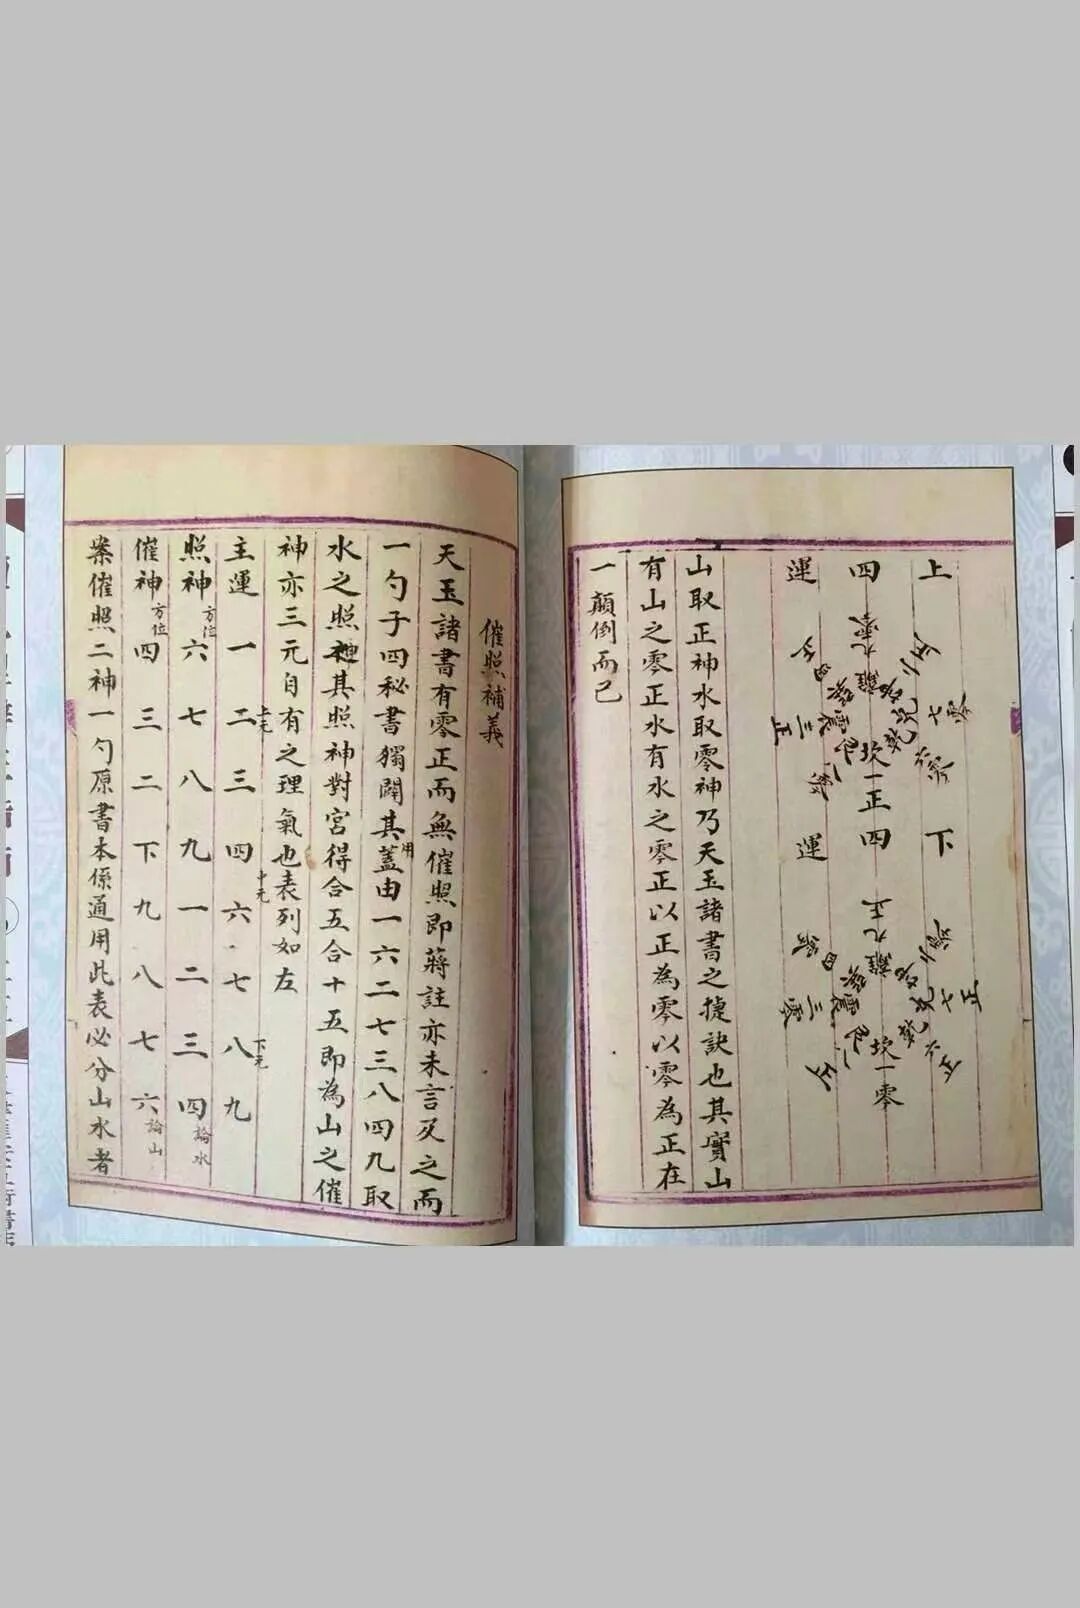 上四運
離九零
坤二正
兌七零
乾六零
坎一正
震三正
巽四正
下四運
離九正
坤二零
兌七正
乾六正
坎一零
震三零
巽四零
山取正神水取零神乃天玉諸書之捷訣也其實山
有山之零正水有水之零正以正為零以零為正在
一顛倒而已
催照補義
天玉諸書有零正而無催照即蔣註亦未言及之而
一勺子四秘書獨闢其用蓋由一六二七三八四九取
水之照神其照神對宮得合五合十五即為山之催
神亦三元自有之理氣也表列如左
上元 中元 下元
主運 一二三四六七八九
照神方位 六七八九一二三四論水
催神方位 四三二下九八七六論山
案催照二神一勺原書本係通用此表必分山水者